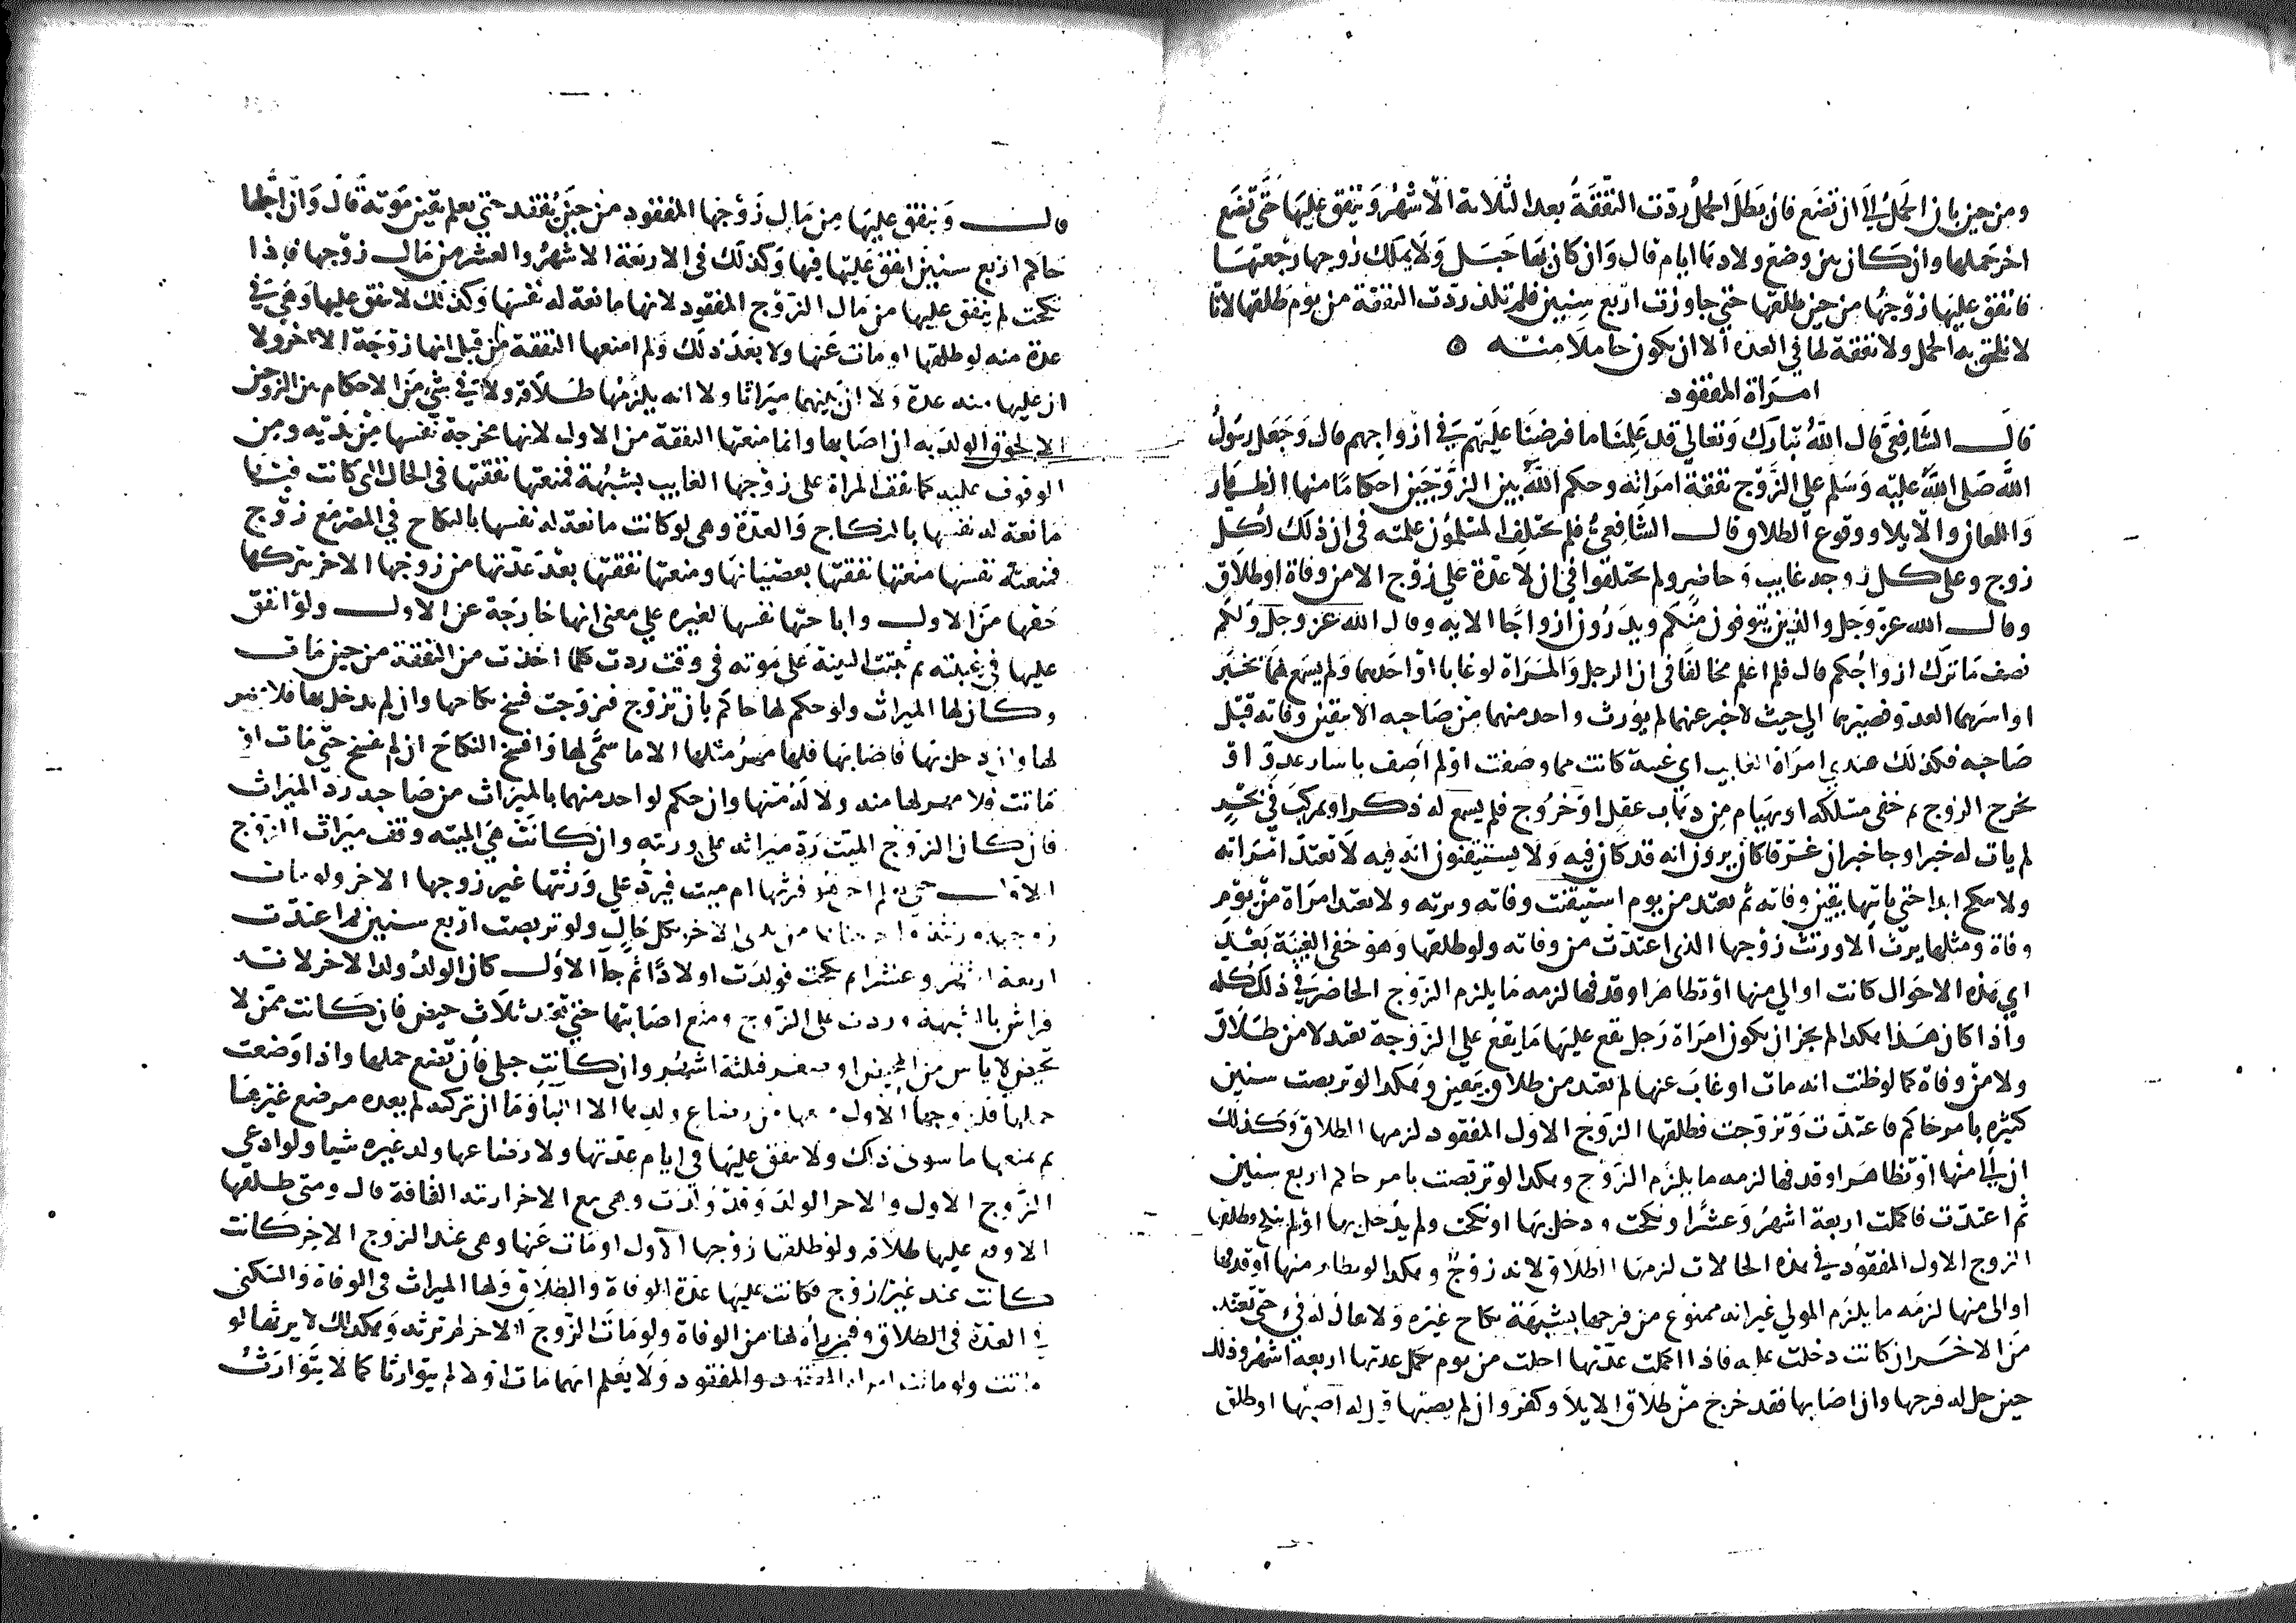 ومن حين بان الحمل الى ان تضع فان بطل الحمل ردت النفقة بعد الثلاثة الاشهر وينفق عليها حتى تضع
اخر حملها وان كان بين وضع ولادها ايام قال وان كان بها حبل ولا يملك زوجها رجعتها
فانفق عليها زوجها من حين طلقها حتى جاوزت اربع سنين فلم تلد ردت النفقة من يوم طلقها لانا
لا نلحق به الحمل ولا نفقة لها في العدة الا ان يكون حاملا منه
امراة المفقود
قال الشافعي قال الله تبارك وتعالى قد علمنا ما فرضنا عليهم في ازواجهم قال وجعل رسول
الله صلى الله عليه وسلم على الزوج نفقة امراته وحكم الله بين الزوجين احكاما منها الظهار
واللعان والايلا ووقوع الطلاق قال الشافعي فلم يختلف المسلمون علمته في ان ذلك لكل
زوج وعلى كل زوجه غايب وحاضر ولم يختلفوا في ان لا عدة على زوج الا من وفاة او طلاق
وقال الله عز وجل والذين يتوفون منكم ويذرون ازواجا الايه وقال الله عز وجل ولكم
نصف ما ترك ازواجكم قال فلم اعلم مخالفا في ان الرجل والمراة لو غابا او احدهما ولم يسمع لهما بخبر
او اسرهما العدو فصيرهما الى حيث لا خبر عنهما لم يورث واحد منهما من صاحبه الا بيقين وفاته قبل
صاحبه فكذلك عندي امراة الغايب اي غيبة كانت مما وصفت او لم اصف باسار عدو او
بخرج الزوج ثم خفى مسلكه او بهيام من ذهاب عقل او خروج فلم يسمع له ذكر او بمركب في بحر
لم يات له خبر او جا خبر ان غرقا كان يرون انه قد كان فيه ولا يستيقنون انه فيه لا تعتد امراته
ولا تنكح ابدا حتى ياتيها يقين وفاته ثم تعتد من يوم استيقنت وفاته وترثه ولا تعتد امراة من يوم
وفاة ومثلها يرث الا ورثت زوجها الذي اعتدت من وفاته ولو طلقها وهو خفى الغيبة بعد
اي هذه الاحوال كانت او الى منها او تظاهر او قذفها لزمه ما يلزم الزوج الحاضر في ذلك كله
واذا كان هذا هكذا لم يجز ان يكون امراة رجل يقع عليها ما يقع على الزوجة تعتد لا من طلاق
ولا من وفاة كما لو ظنت انه مات او غاب عنها لم تعتد من طلاق بيقين وهكذا لو تربصت سنين
كثيره بامر حاكم فاعتدت وتزوجت فطلقها الزوج الاول المفقود لزمها الطلاق وكذلك
ان الى منها او تظاهر او قذفها لزمه ما يلزم الزوج وهكذا لو تربصت بامر حاكم اربع سنين
ثم اعتدت فاكملت اربعة اشهر وعشرا ونكحت ودخل بها او نكحت ولم يدخل بها او لم تنكح وطلقها
الزوج الاول المفقود في هذه الحالات لزمها الطلاق لانه زوج وهكذا لو تظاهر منها او قذفها
او الى منها لزمه ما يلزم المولي غير انه ممنوع من فرجها بشبهة نكاح غيره ولا يقال له فئ حتى تعتد
من الاخر ان كانت دخلت عليه فاذا اكملت عدتها اجلت من يوم تكمل عدتها اربعة اشهر وذلك
حين حل له فرجها وان اصابها فقد خرج من طلاق الايلا وكفر وان لم يصبها قيل له اصبها او طلق
قال وينفق عليها من مال زوجها المفقود من حين يفقد حتى يعلم يقين موته قال وان اجلها
حاكم اربع سنين انفق عليها فيها وكذلك في الاربعة الاشهر والعشر من مال زوجها فاذا
نكحت لم ينفق عليها من مال الزوج المفقود لانها مانعة له نفسها وكذلك لا ينفق عليها وهي في
عدة منه لو طلقها او مات عنها ولا بعد ذلك ولم امنعها النفقة من قبل انها زوجة الاخر ولا
ان عليها منه عدة ولا ان بينهما ميراثا ولا انه يلزمها طلاقه ولا في شي من الاحكام بين الزوجين
الا لحوق الولد به ان اصابها وانما منعتها النفقة من الاول لانها مخرجة نفسها من يديه ومن
الوقوف عليه كما تقف المراة على زوجها الغايب بشبهة فمنعتها نفقتها في الحال التي كانت فيها
مانعة له نفسها بالنكاح والعدة وهي لو كانت مانعة له نفسها بالنكاح في المصر مع زوج
فمنعته نفسها منعتها نفقتها بعصيانها ومنعتها نفقتها بعد عدتها من زوجها الاخر بتركها
حقها من الاول واباحتها نفسها لغيره على معنى انها خارجة عن الاول ولو انفق
عليها في غيبته ثم ثبتت البينة على موته في وقت ردت كلما اخذت من النفقة من حين مات
وكان لها الميراث ولو حكم لها حاكم بان تزوج فتزوجت فسخ نكاحها وان لم يدخل بها فلا مهر
لها وان دخل بها فاصابها فلها مهر مثلها الا ما سمى لها وافسخ النكاح ان لم يفسخ حتى مات او
ماتت فلا مهر لها منه ولا له منها وان حكم لواحد منهما بالميراث من صاحبه رد الميراث
فان كان الزوج الميت رد ميراثه على ورثته وان كانت هي الميته وقف ميراث الزوج
الاول حتى يعلم احي هو فيرثها ام ميت فيرد على ورثتها غير زوجها الاخر ولو مات
زوجها ورثته ... من يدي الاخر بكل حال ولو تربصت اربع سنين ثم اعتدت
اربعة اشهر وعشرا ثم نكحت فولدت اولادا ثم جا الاول كان الولد ولد الاخر لانه
فراش بالشبهة وردت على الزوج ومنع اصابتها حتى تعتد ثلاث حيض فان كانت ممن لا
تحيض لاياس من المحيض او صغر فثلثة اشهر وان كانت حبلى فان تضع حملها واذا وضعت
حملها فلزوجها الاول منعها من رضاع ولدها الا اللبا وما ان تركته لم يغذه مرضع غيرها
ثم يمنعها ما سوى ذلك ولا ينفق عليها في ايام عدتها ولا رضاعها ولد غيره شيا ولو ادعى
الزوج الاول والاخر الولد وقد ولدت وهي مع الاخر اريته القافة قال ومتى طلقها
الاول وقع عليها طلاقه ولو طلقها زوجها الاول او مات عنها وهي عند الزوج الاخر كانت
كانت عند غير زوج فكانت عليها عدة الوفاة والطلاق ولها الميراث في الوفاة والسكنى
في العدة في الطلاق وفيمن رآه لها من الوفاة ولو مات الزوج الاخر لم ترثه وهكذا لا يرثها لو
ماتت ولو ماتت امراة المفقود والمفقود ولا يعلم ايهما مات اولا لم يتوارثا كما لا يتوارث